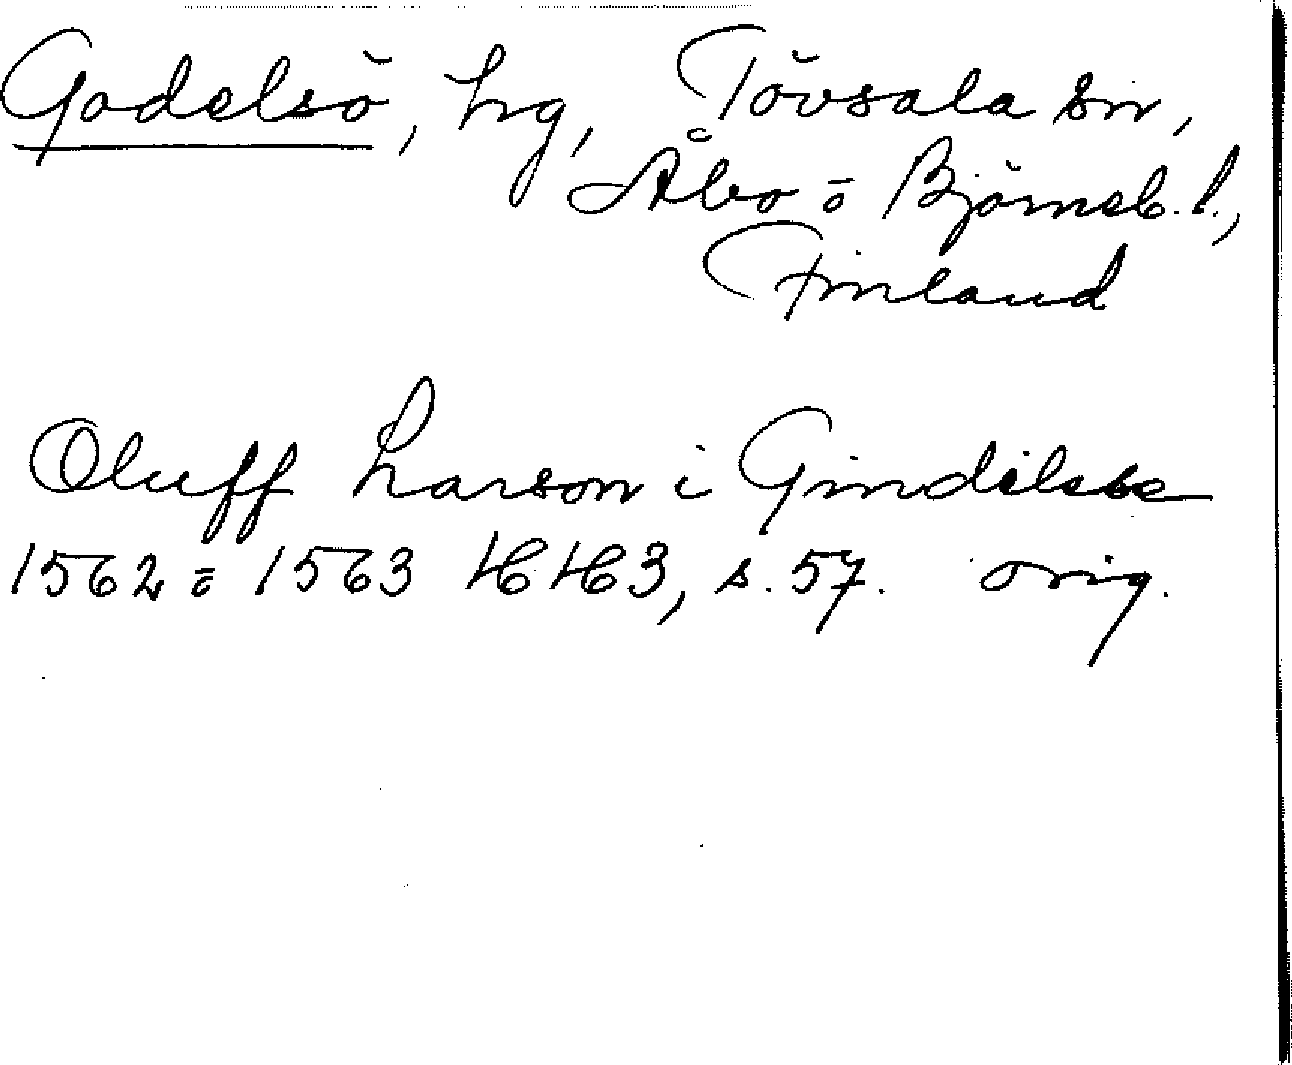 Godelsö, hg, Tövsala sn,
Åbo ō Björneb. l.,
Finland
Oluff Larson i Gindelsbe
1562 ō 1563 HH3, s. 57. orig.